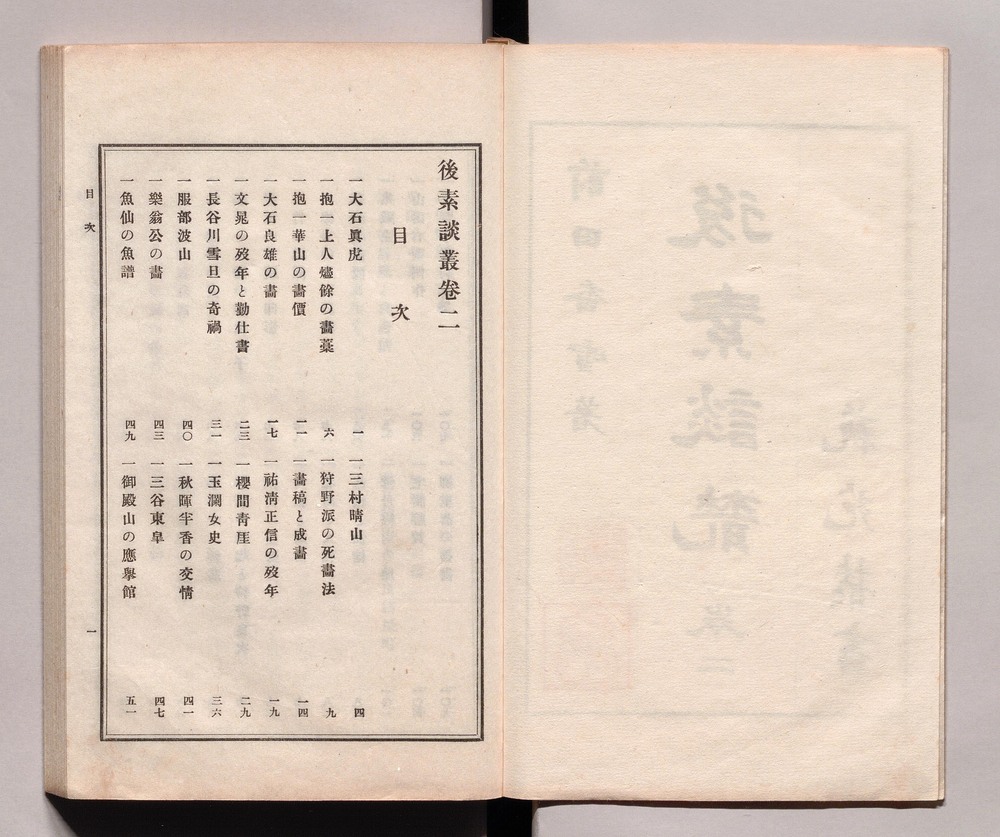 後素談叢卷二
目次
一大石眞虎 一
一三村晴山 四
一抱一上人燼餘の畵藁 六
一狩野派の死畵法 九
一抱一華山の畵價 一一
一畵稿と成畵 一四
一大石良雄の畵 一七
一祐淸正信の歿年 一九
一文晁の歿年と勤仕書 二三
一櫻間靑厓 二九
一長谷川雪旦の奇禍 三一
一玉瀾女史 三六
一服部波山 四〇
一秋暉半香の交情 四一
一樂翁公の畵 四三
一三谷東皐 四七
一魚仙の魚譜 四九
一御殿山の應擧館 五一
目次
一